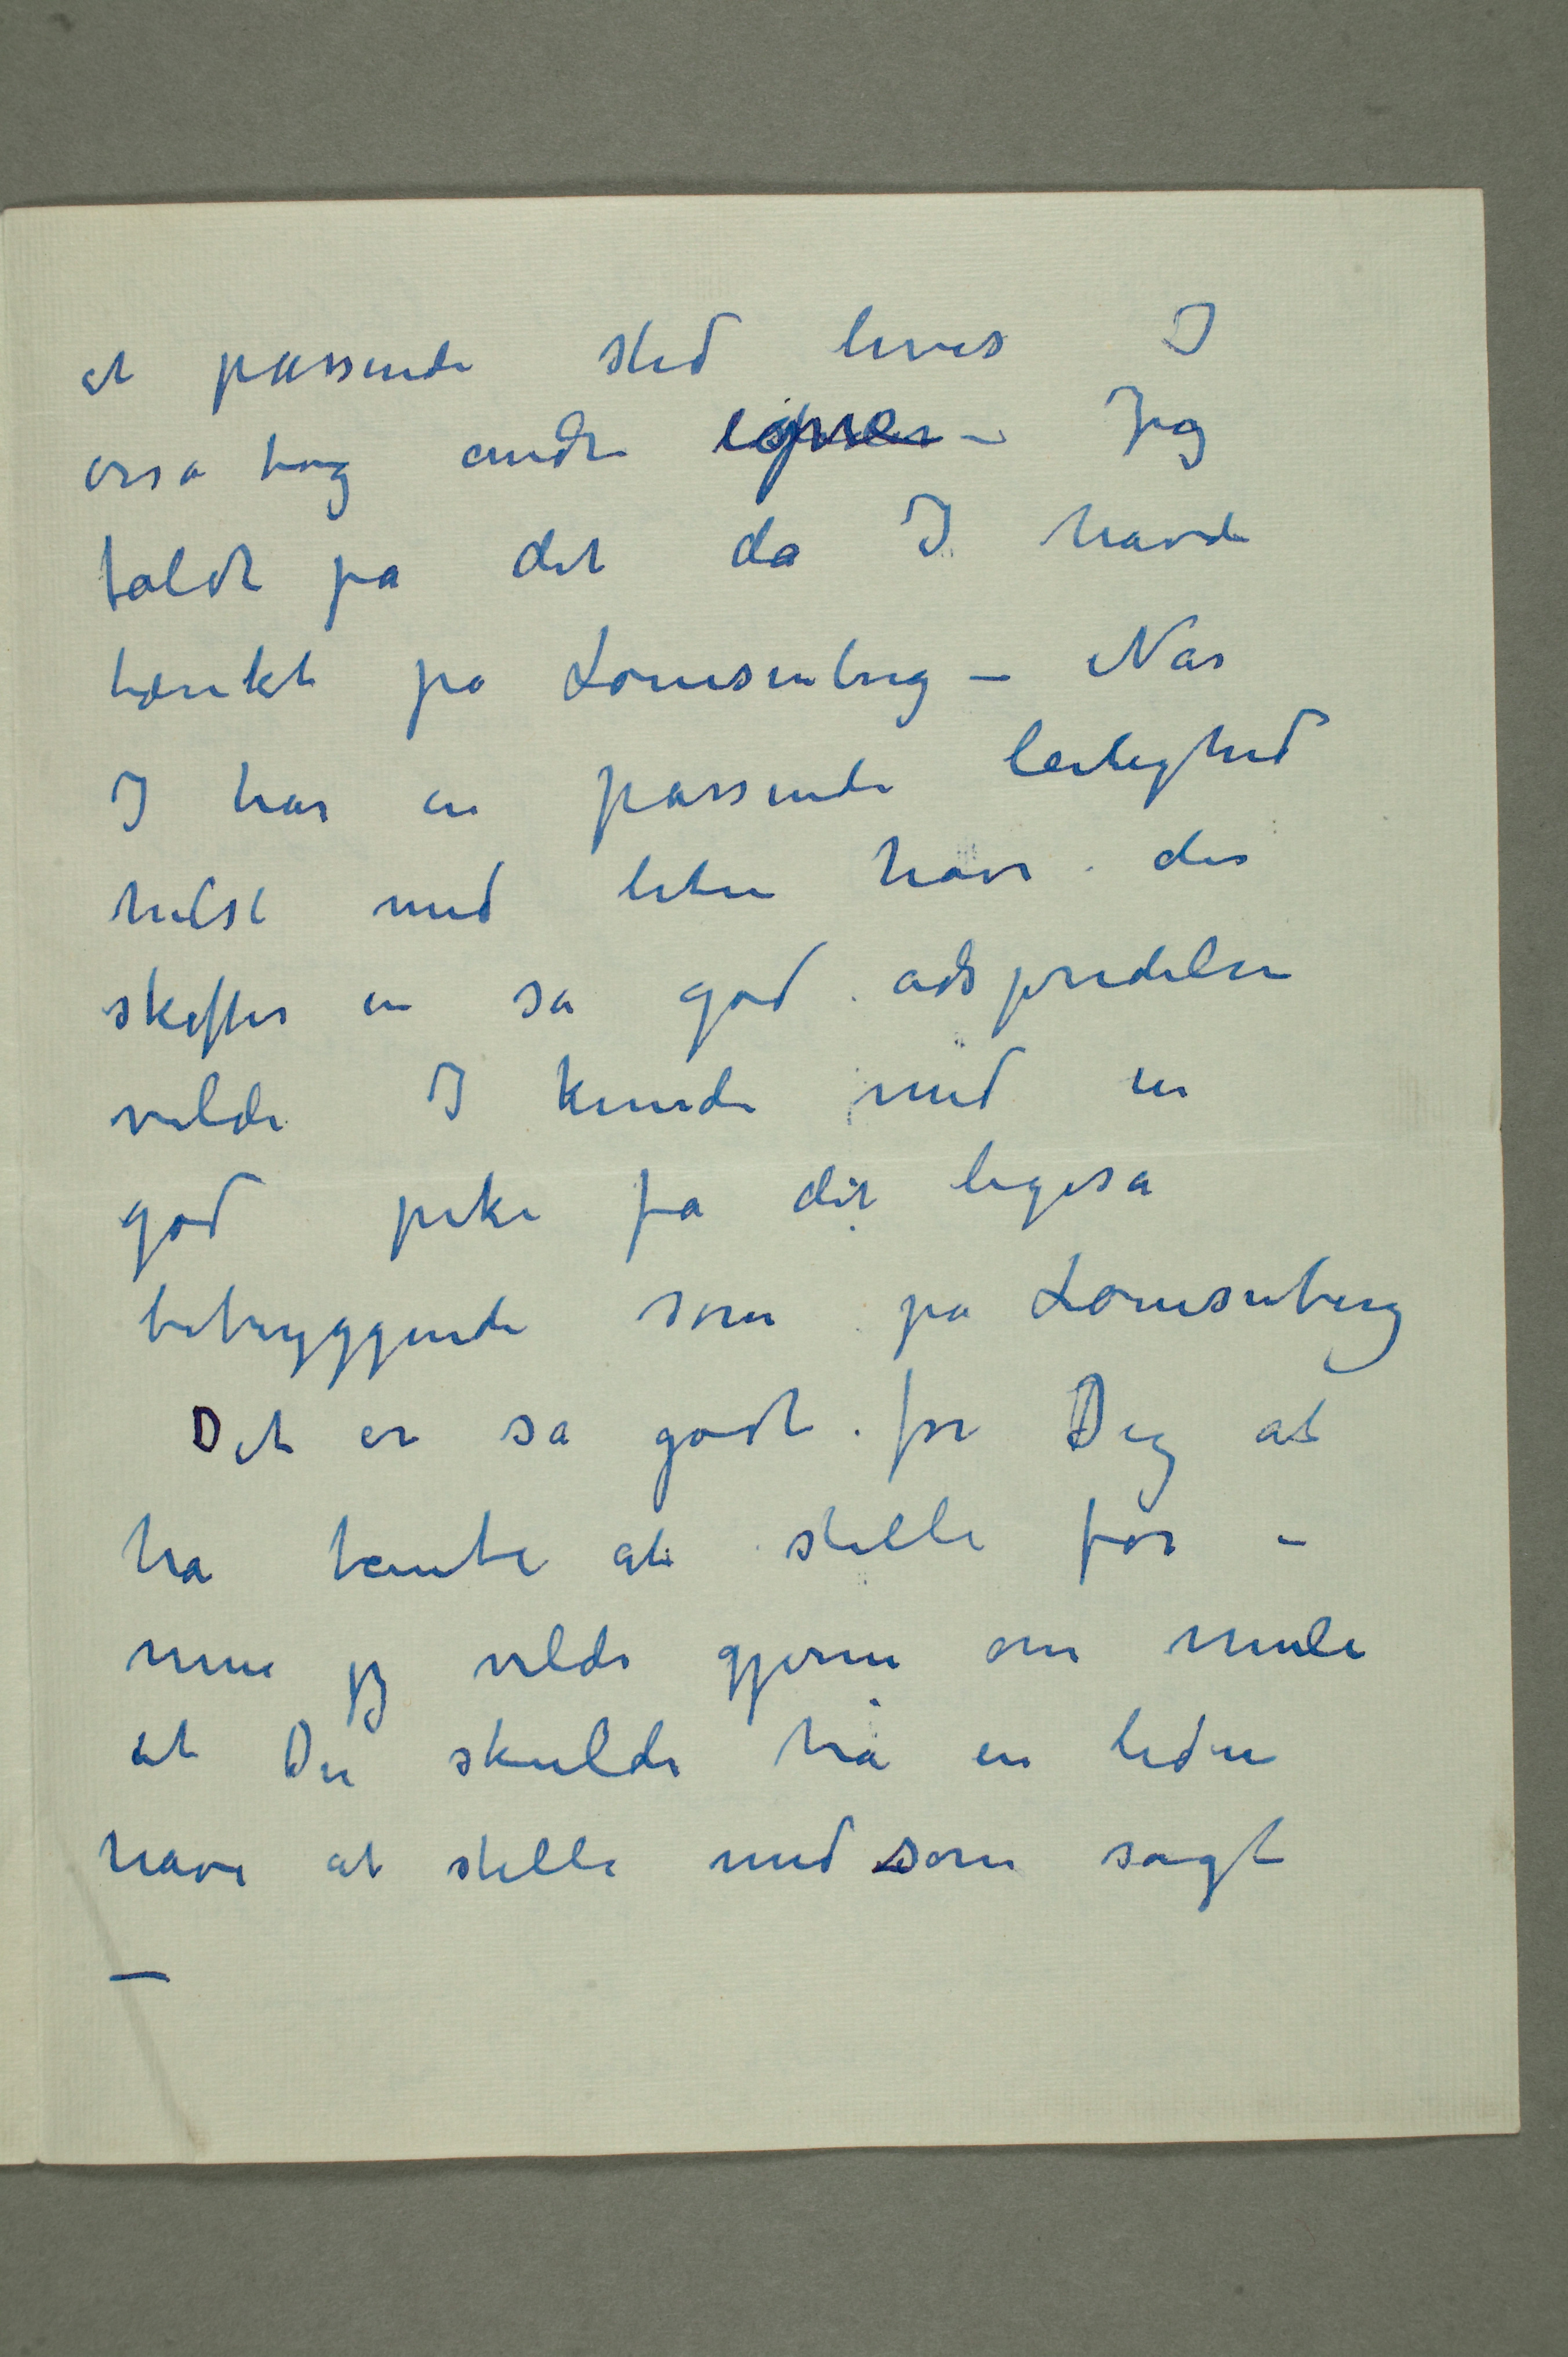 et passende sted hvis I
osså tog andre egner – Jeg
faldt på det da I havde
tænkt på Louisenberg – Når
I har en passende leilighed
helst med liten have der
skaffer en så god adspredelse
vilde I kunde med en
god pike få det ligeså
betryggende som på Louisenberg
Det er så godt for Dig at
ha tante at stelle for –
men jeg vilde gjerne om
at Du skulde ha en liden
have at stelle med som sagt
–